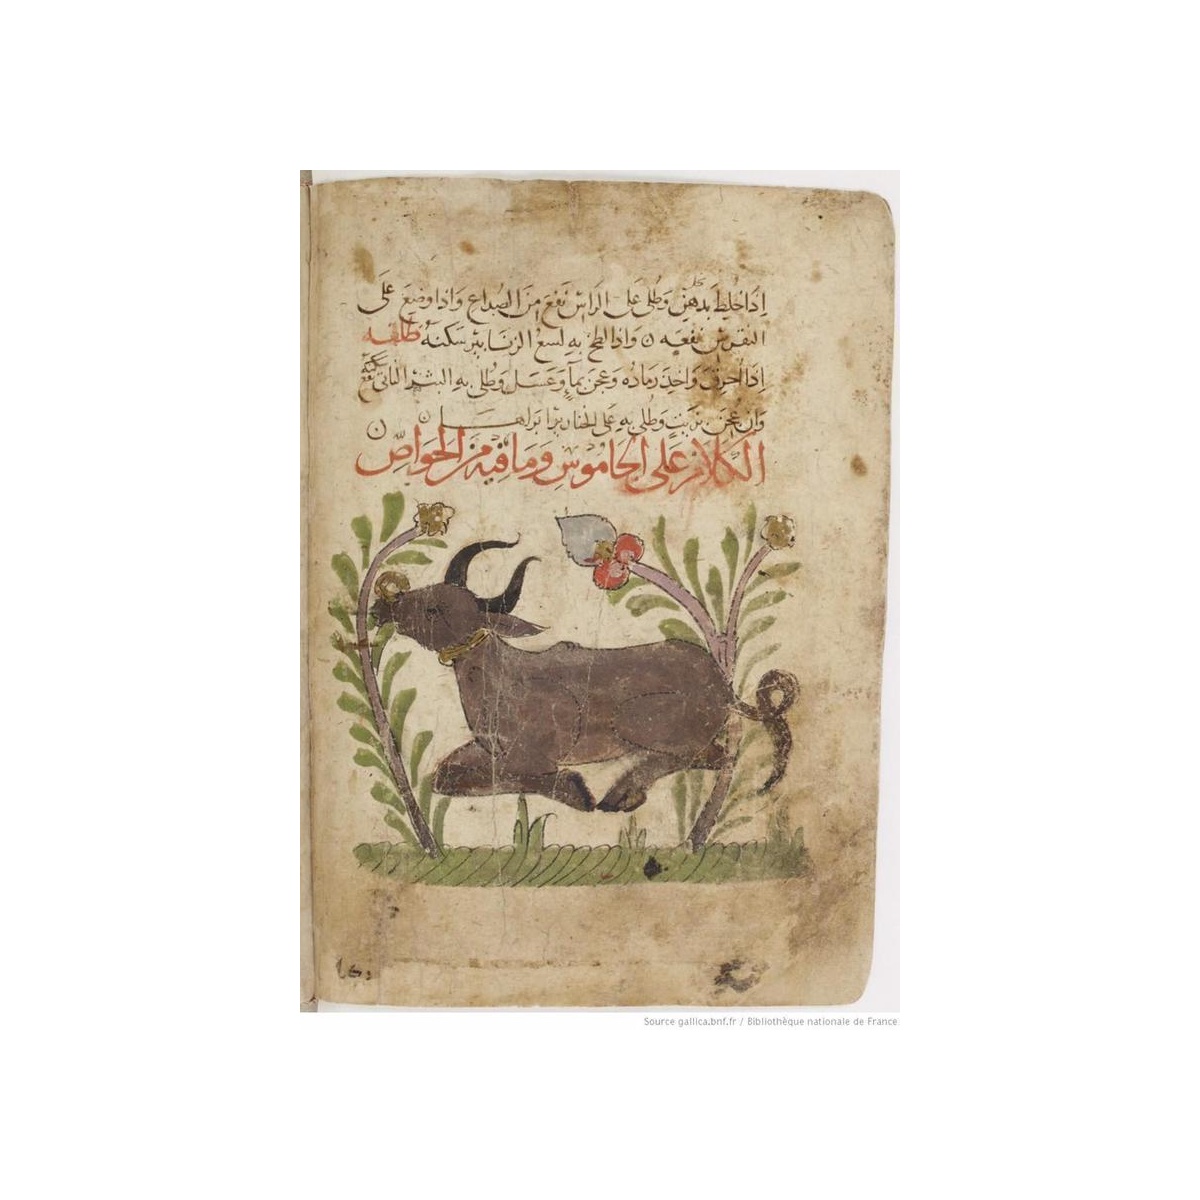 إذا خلط بدهن وطلي على الراس نفع من الصداع واذا وضع على
النقرس نفعه ن واذا لطخ به لسع الزنابير سكنه ظلفه
إذا احرق واخذ رماده وعجن بماء وعسل وطلي به البثر
وان عجن بزيت وطلي به على الخنازير ابراها ن ن
الكلام على الجاموس وما فيه من الخواص
Source gallica.bnf.fr / Bibliothèque nationale de France